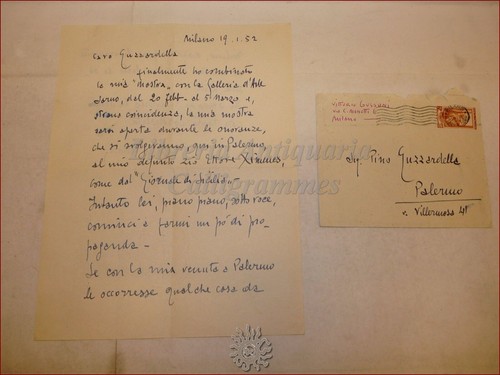 Milano 19.1.52
Caro Guzzardella
finalmente ho combinato
la mia "mostra" con la Galleria d'Arte
dal 20 febb- al 5 Marzo e,
strana coincidenza, la mia mostra
sarà aperta durante le onoranze,
che si svolgeranno, qui in Palermo,
al mio defunto zio Ettore Ximenes,
come dal "Giornale di Sicilia" -
Intanto lei, piano piano, sotto voce,
cominci a farmi un pò di pro-
paganda -
Se con la mia venuta a Palermo
Le occorresse qualche cosa da
Vittorio
Milano
Sig. Pino Guzzardella
Palermo
v. Villermosa 41
Libreria Antiquaria
Calligrammes